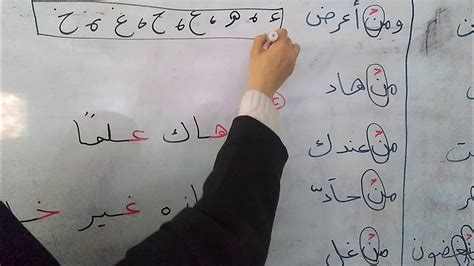 ء و ه و ع و ح و غ و خ
ومن أعرض
من هاد
من عندك
من حادّ
من غل
هاك علمًا
غير